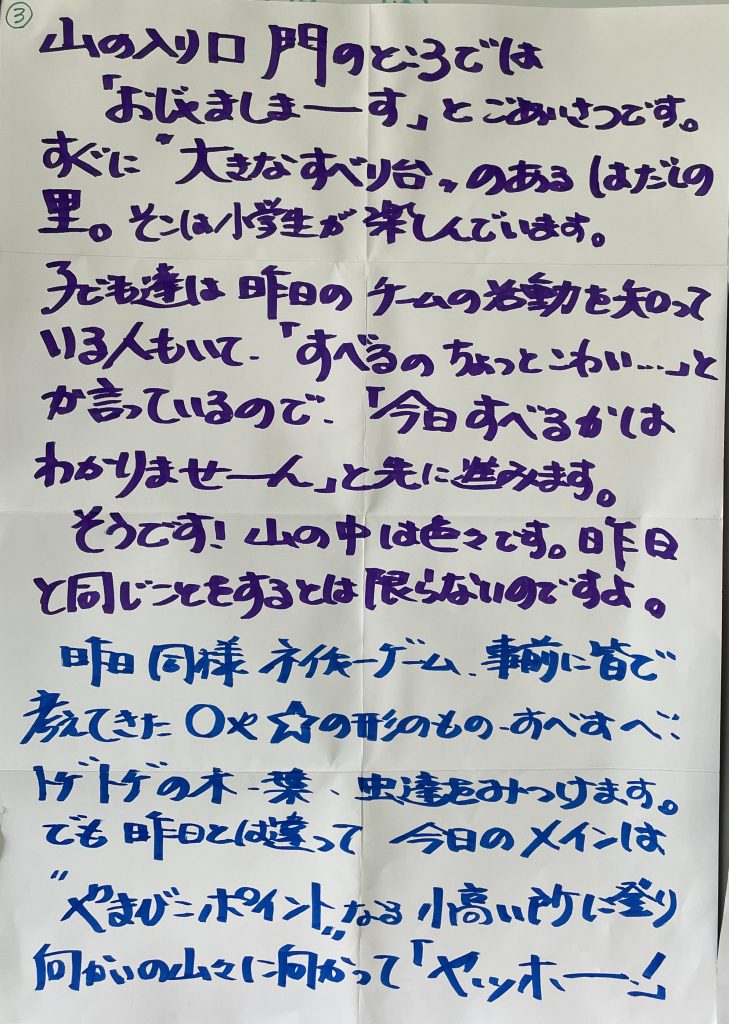 ③
山の入り口 門のところでは
「おじゃましまーす」とごあいさつです。
すぐに〝大きなすべり台〟のある はだしの
里。そこは小学生が楽しんでいます。
子ども達は 昨日の チームの活動を知って
いる人もいて、「すべるの ちょっとこわい…」と
か言っているので、「今日すべるかは
わかりませーん」と先に進みます。
そうです! 山の中は色々です。昨日
と同じことをするとは限らないのですよ。
昨日同様 ネイチャーゲーム、事前に皆で
考えてきた ○や☆の形のもの、すべすべ、
トゲトゲの木、葉、虫達をみつけます。
でも 昨日とは違って 今日のメインは
〝やまびこポイント〟なる 小高い所に登り
向かいの山々に向かって「ヤッホー!」